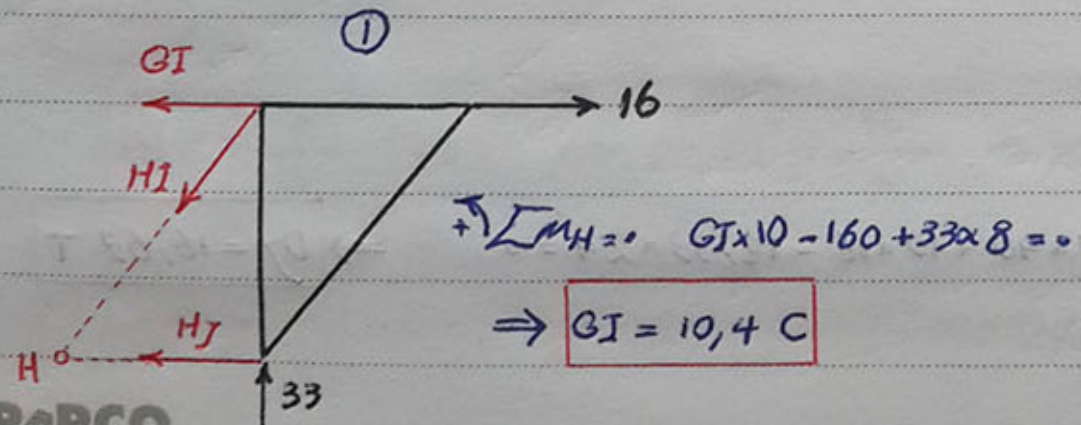 ①
GI
16
HI
+↰ ΣMH=0 GI×10-160+33×8=0
⇒ GI = 10,4 C
HJ
H
33